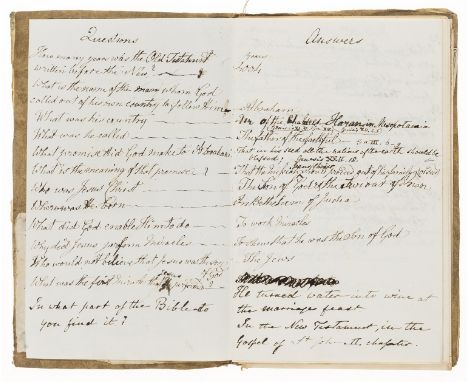 Questions
How many years was the Old Testament
written before the New?
What is the name of the man whom God
called out of his own country to follow Him
What was his country
What was he called
What promise did God make to Abraham
What is the meaning of that promise?
Who was Jesus Christ
Where was He Born
What did God enable Him to do
Why did Jesus perform Miracles
Who would not believe that Jesus was the Son of God
What was the first miracle that Jesus performed?
In what part of the Bible do
you find it?
Answers
years
Abraham
Ur of the Chaldees Haran in Mesopotamia
The father of the faithful
That in his seed all the nations of the earth should be
blessed; Genesis XXII. 18.
That the should proceed out of his family
The Son of God & the Saviour of Sinners
In Bethlehem of Judea
To work miracles
To shew that he was the Son of God
The Jews
He turned water into wine at
the marriage feast
In the New Testament, in the
Gospel of St John II. chapter.